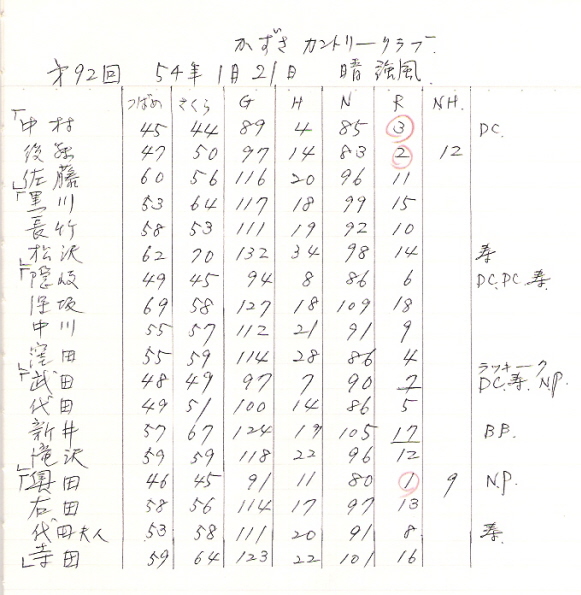 かずさカントリークラブ
第92回 54年1月21日 晴 強風
つばめ さくら G H N R NH.
「中村 45 44 89 4 85 3 DC.
後 47 50 97 14 83 2 12
佐藤 60 56 116 20 96 11
「黒川 53 64 117 18 99 15
長竹 58 53 111 19 92 10
松沢 62 70 132 34 98 14 寿
「隠岐 49 45 94 8 86 6 DC.DC.寿.
保坂 69 58 127 18 109 18
中川 55 57 112 21 91 9
窪田 55 59 114 28 86 4
「武田 48 49 97 7 90 7 ラッキー DC.寿.N.P.
代田 49 51 100 14 86 5
新井 57 67 124 19 105 17 BB.
滝沢 59 59 118 22 96 12
「奥田 46 45 91 11 80 1 9 N.P.
右田 58 56 114 17 97 13
代田夫人 53 58 111 20 91 8 寿.
寺田 59 64 123 22 101 16